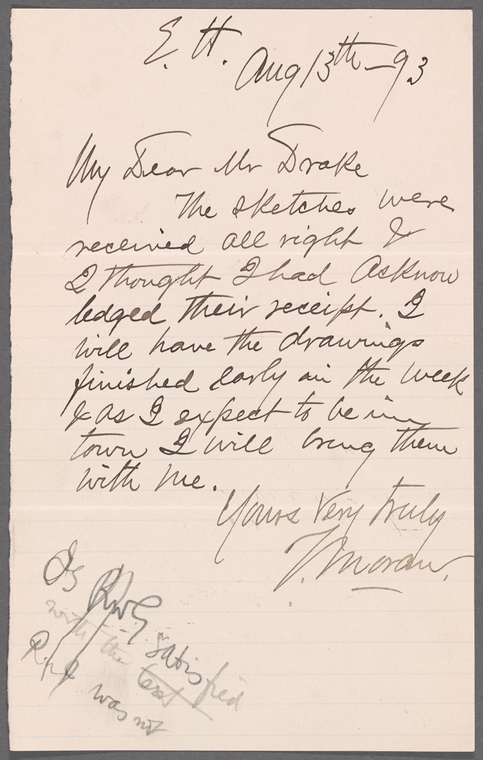 E. H.
Aug 13th - 93
My Dear Mr Drake
The sketches were
received all right &
I thought I had Asknow
ledged their receipt. I
will have the drawings
finished early in the week
& as I expect to be in
town I will bring them
with me.
Yours Very truly
T. Moran.
Is RWG satisfied
with the text
was not